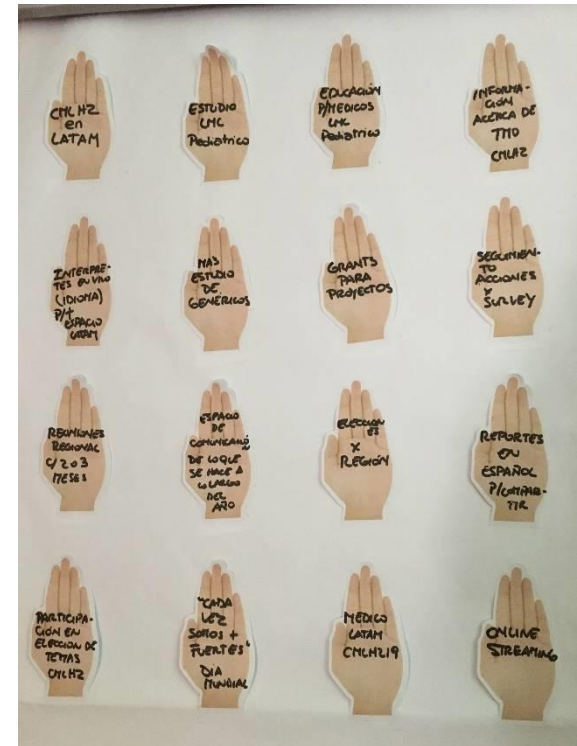 CMLHZ
en
LATAM
ESTUDIO
LMC
Pediatrico
EDUCACIÓN
P/MEDICOS
LMC
Pediatrico
INFORMA-
CIÓN
ACERCA DE
TMD
CMLHZ
INTERPRE-
TES EN VIVO
(IDIOMA)
P/+
ESPACIO
LATAM
MAS
ESTUDIO
DE
GENÉRICOS
GRANTS
PARA
PROYECTOS
SEGUIMIEN-
TO
ACCIONES
X
SURVEY
REUNIONES
REGIONAL
C/2 o 3
MESES
ESPACIO
DE
COMUNICACIÓ
DE LO QUE
SE HACE A
LO LARGO
DEL
AÑO
ELECCION
ES
X
REGIÓN
REPORTES
EN
ESPAÑOL
P/COMPAR-
TIR
PARTICIPA-
CIÓN EN
ELECCION DE
TEMAS
CMLHZ
"CADA
VEZ
SOMOS +
FUERTES"
DIA
MUNDIAL
MEDICO
LATAM
CMLHZ19
ONLINE
STREAMING